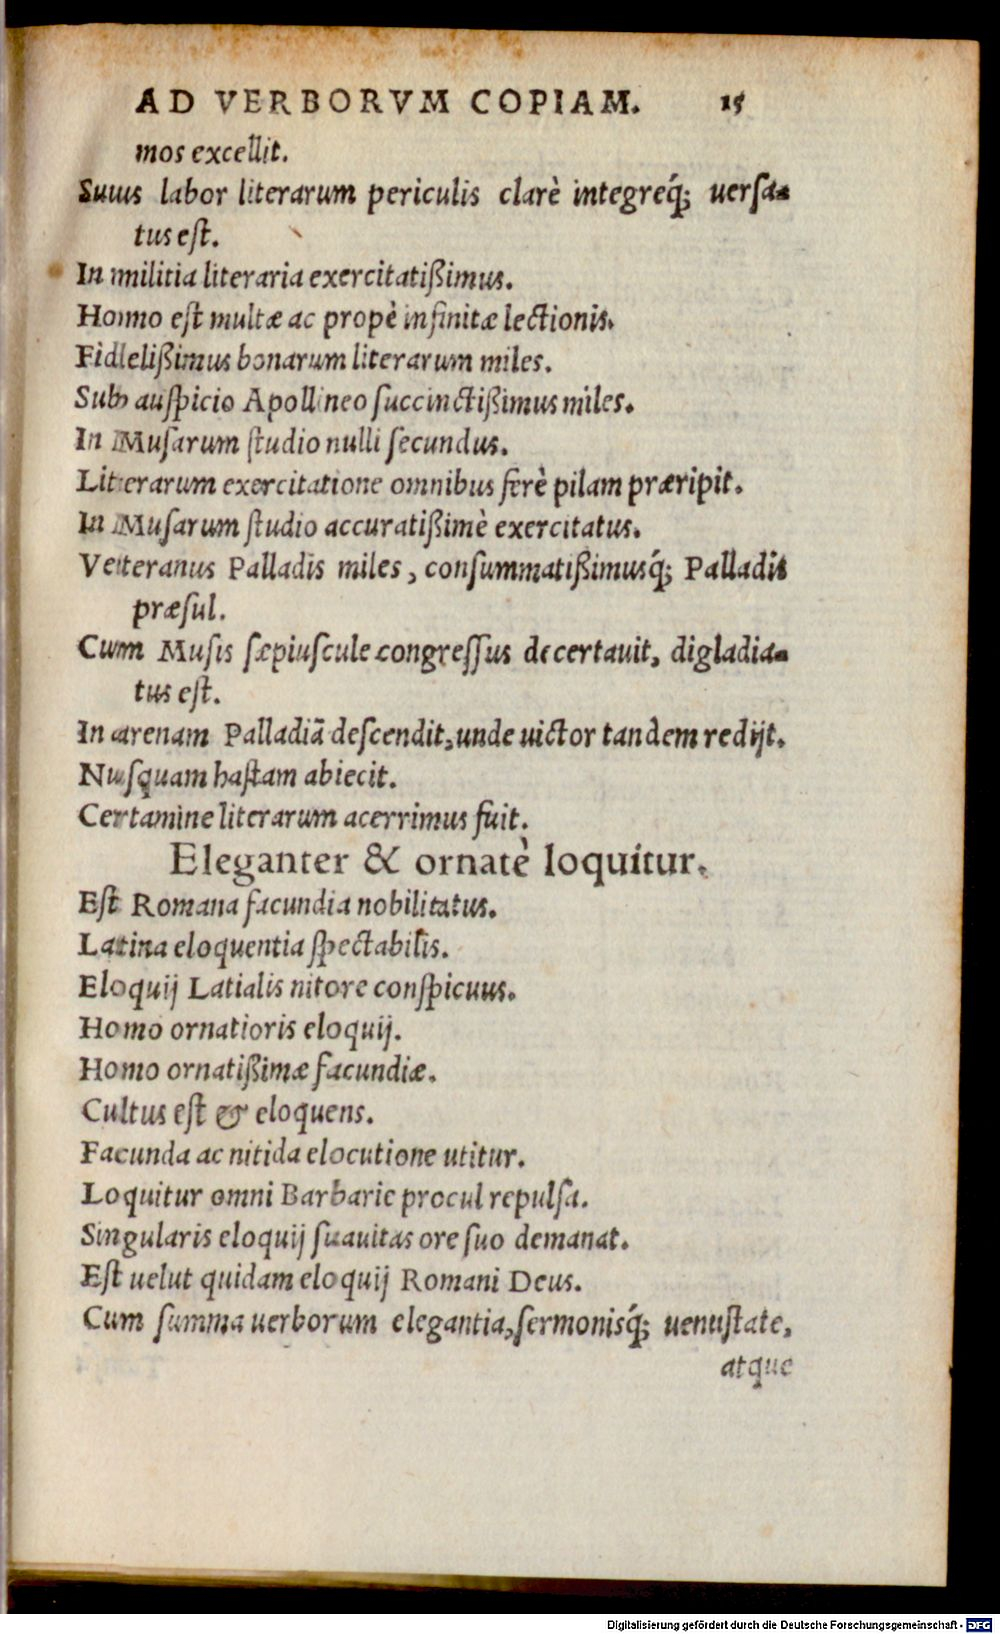 AD VERBORVM COPIAM. 15
mos excellit.
Suus labor literarum periculis clarè integreq́; uersa-
tus est.
In militia literaria exercitatißimus.
Homo est multæ ac propè infinitæ lectionis.
Fidelißimus bonarum literarum miles.
Sub auspicio Apollineo succinctißimus miles.
In Musarum studio nulli secundus.
Literarum exercitatione omnibus ferè pilam præripit.
In Musarum studio accuratißimè exercitatus.
Veteranus Palladis miles, consummatißimusq́; Palladis
præsul.
Cum Musis sæpiuscule congressus decertauit, digladia-
tus est.
In arenam Palladiā descendit, unde uictor tandem redijt.
Nusquam hastam abiecit.
Certamine literarum acerrimus fuit.
Eleganter & ornatè loquitur.
Est Romana facundia nobilitatus.
Latina eloquentia spectabilis.
Eloquij Latialis nitore conspicuus.
Homo ornatioris eloquij.
Homo ornatißimæ facundiæ.
Cultus est & eloquens.
Facunda ac nitida elocutione utitur.
Loquitur omni Barbarie procul repulsa.
Singularis eloquij suauitas ore suo demanat.
Est uelut quidam eloquij Romani Deus.
Cum summa uerborum elegantia, sermonisq́; uenustate,
atque
Digitalisierung gefördert durch die Deutsche Forschungsgemeinschaft - DFG